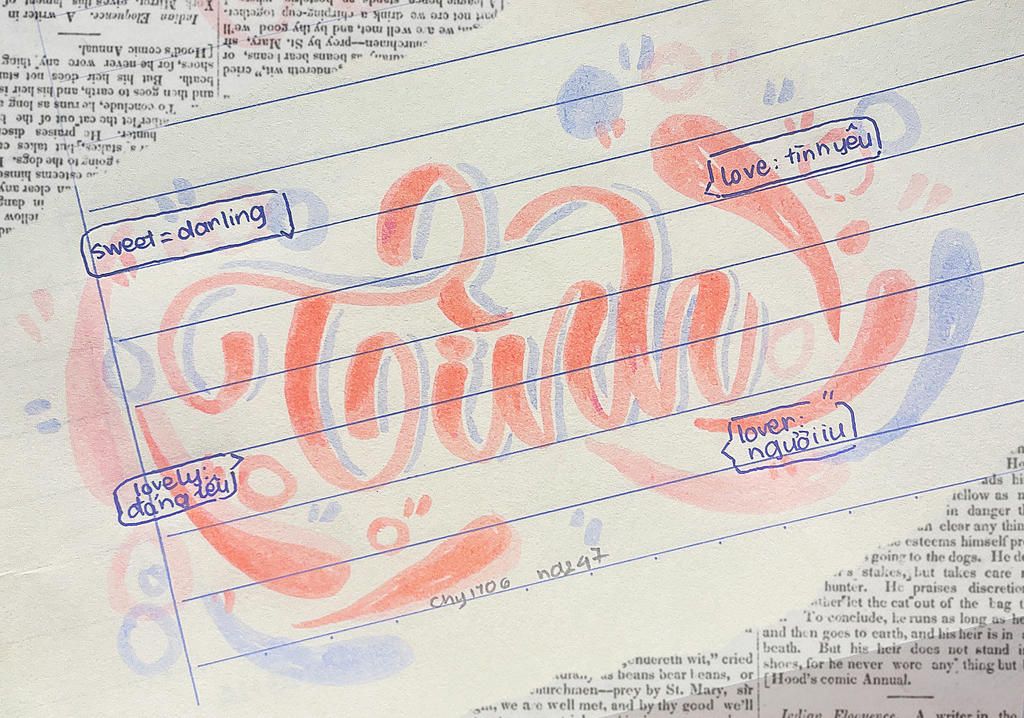 Indian Eloquence. A writer in
[Hood's comic Annual.
shoes, for he never wore any thing
beath. But his heir does not stand
and then goes to earth, and his heir is
To conclude, he runs as long a
let the cat out of the
hunter. He praises
stakes, but takes
going to the dogs.
esteems himse
clear any
in dang
ellow
not ere we drink a chirping-cup together.
we are well met, and by thy good we'll
prey by St. Mary, sir
as beans bear beans, or
wit," cried
love: tình yêu
sweet = darling
Tình
lover:
người iu
lovely:
đáng
chy1706 nd247
ads
iellow as
in danger
clear any thin
esteems himself
going to the dogs. He
stakes, but takes care
hunter. He praises discretion
let the cat out of the bag
To conclude, he runs as long as he
and then goes to earth, and his heir is in
beath. But his heir does not stand
shoes, for he never wore any thing but
[Hood's comic Annual.
Indian Eloquence. A writer in the
wit," cried
as beans bear beans, or
prey by St. Mary, sir
we are well met, and by thy good we'll